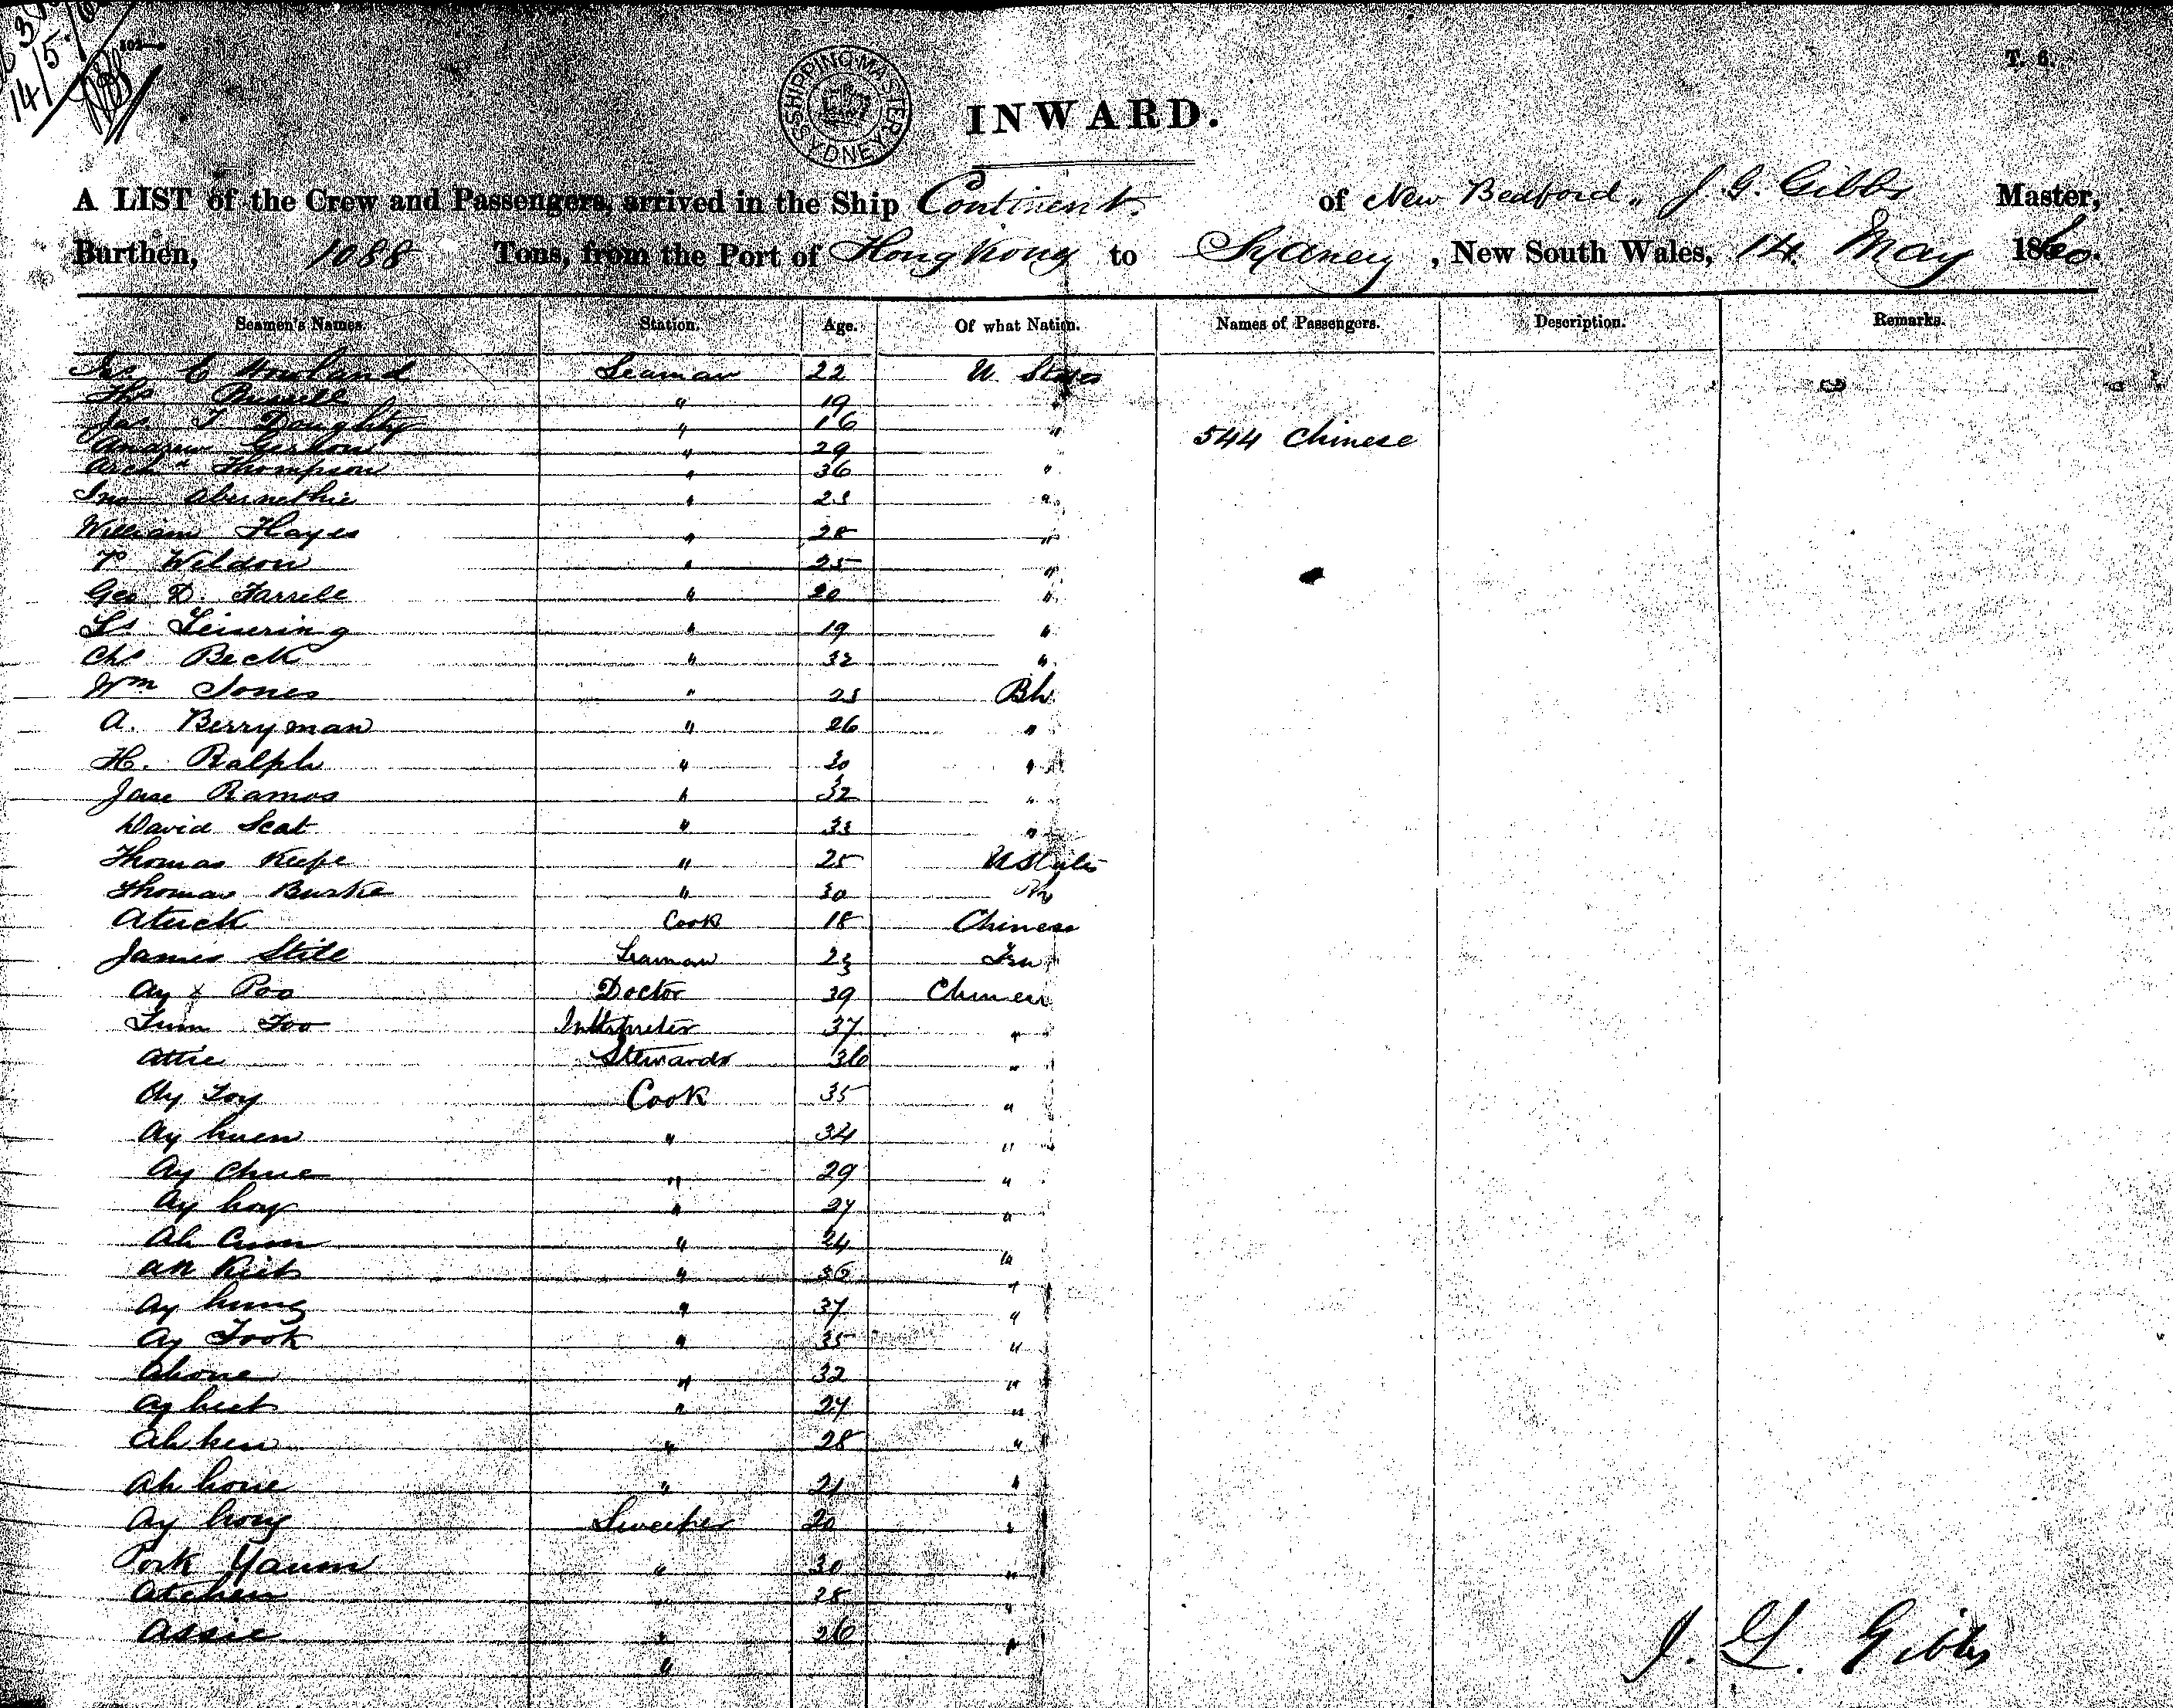 14/5/60
T. 6.
SHIPPING MASTER SYDNEY
INWARD.
A LIST of the Crew and Passengers, arrived in the Ship Continent. of New Bedford, J. G. Gibbs Master,
Burthen, 1088 Tons, from the Port of Hong Kong to Sydney, New South Wales, 14 May 1860.
Seamen's Names. Station. Age. Of what Nation. Names of Passengers. Description. Remarks.
C Howland Seaman 22 U. States
Thos Russell " 19 "
Jas T Doughty " 16 "
544 Chinese
Andrew " 29
Archd Thompson " 36 "
Jno Abernethie " 23 "
William Hayes " 28 "
P Weldon " 25 "
Geo D. Farrell " 20 "
Ls " 19 "
Chs Beck " 32 "
Wm Jones " 23 Bh
A. Berryman " 26 "
H. Ralph " 30 "
Jose Ramos " 32 "
David Scat " 33 "
Thomas Keefe " 25 U States
Thomas Burke " 30
Atuck Cook 18 Chinese
James Still Seaman 23
Ay x Poo Doctor 39 Chinese
Foo Interpreter 37 "
Attie Stewards 36 "
Ay Toy Cook 35 "
Ay huen " 34 "
Ay Chue " 29 "
Ay hoy " 27 "
Ah Cum " 24 "
Ah Kiet " 36 "
Ay hung " 37 "
Ay Took " 35 "
Ahone " 32 "
Ay hiet " 27 "
Ah hen " 28 "
Ah hone " 21 "
Ay hong Sweeper 20 "
Pork Yaum " 30 "
Atchen 28 "
Assie " 26 "
"
J. G. Gibbs